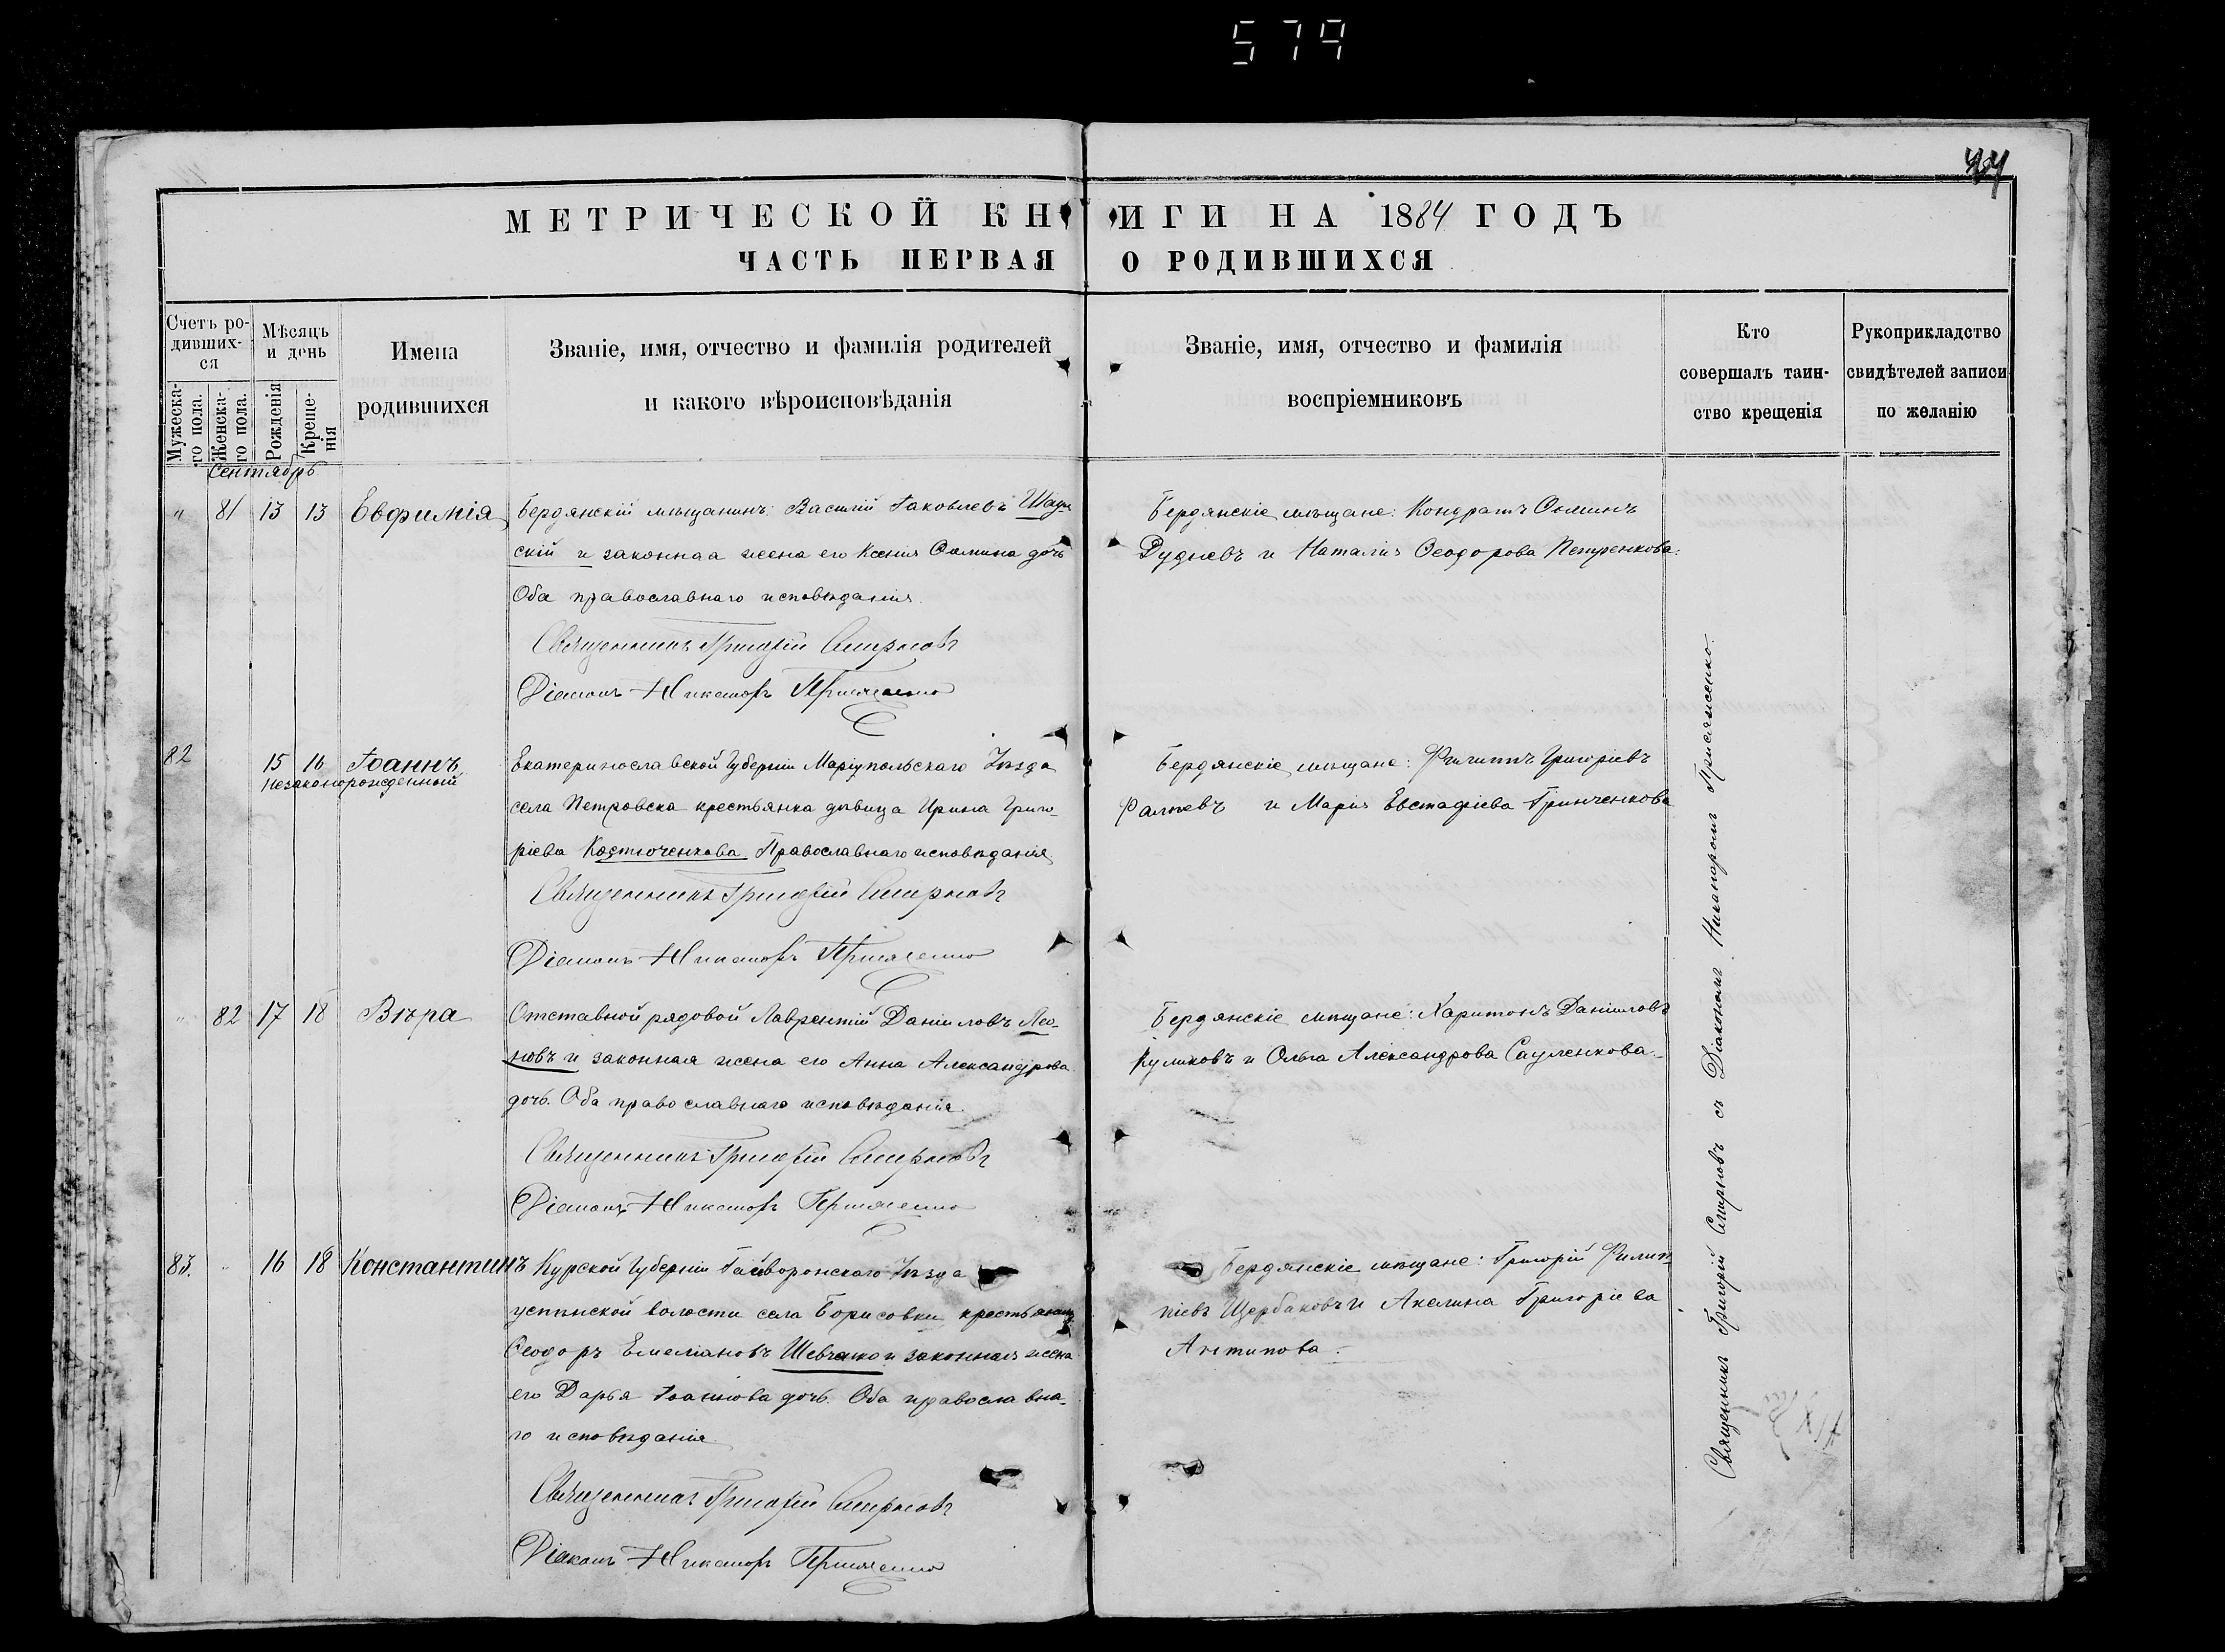 579
44
МЕТРИЧЕСКОЙ КНИГИ НА 1884 ГОДЪ
ЧАСТЬ ПЕРВАЯ О РОДИВШИХСЯ
Счетъ ро-
дивших-
ся
Мужеска-
го пола.
Женска-
го пола.
Мѣсяцъ
и день
Рожденія
Креще-
нія
Имена
родившихся
Званіе, имя, отчество и фамилія родителей
и какого вѣроисповѣданія
Званіе, имя, отчество и фамилія
воспріемниковъ
Кто
совершалъ таин-
ство крещенія
Рукоприкладство
свидѣтелей записи
по желанію
Сентябрь
" 81 13 13 Евфимія
Бердянскій мѣщанинъ: Василій Іаковлевъ
скій и законная жена его Ксенія Ѳомина дочь
Оба православнаго исповѣданія
Священникъ Григорій Смирновъ
Діаконъ Никаноръ Присяженко
Бердянскіе мѣщане: Кондратъ Ѳоминъ
Рудневъ и Наталія Ѳеодорова Петренкова.
82 15 16 Іоаннъ
незаконорожденный
Екатеринославской Губерніи Маріупольскаго Уѣзда
села Петровска крестьянка дѣвица Ирина Григо-
ріева Костюченкова Православнаго исповѣданія
Священникъ Григорій Смирновъ
Діаконъ Никаноръ Присяженко
Бердянскіе мѣщане: Филиппъ Григоріевъ
Фалѣевъ и Марія Евстафіева Гринченкова
" 82 17 18 Вѣра
Отставной рядовой Лаврентій Даніиловъ Лео-
новъ и законная жена его Анна Александрова
дочь. Оба православнаго исповѣданія.
Священникъ Григорій Смирновъ
Діаконъ Никаноръ Присяженко
Бердянскіе мѣщане: Харитонъ Даніиловъ
Куликовъ и Ольга Александрова Сауленкова.
83. " 16 18 Константинъ
Курской Губерніи Гайворонскаго Уѣзда
волости села Борисовки крестьянинъ
Ѳеодоръ Емеліановъ Шевченко и законная жена
его Дарья Іоаннова дочь. Оба православна-
го исповѣданія
Священникъ Григорій Смирновъ
Діаконъ Никаноръ Присяженко
Бердянскіе мѣщане: Григорій Филип-
піевъ Щербаковъ и Акелина Григоріева
Антипова.
Священникъ Григорій Смирновъ съ Діакономъ Никаноромъ Присяженко.